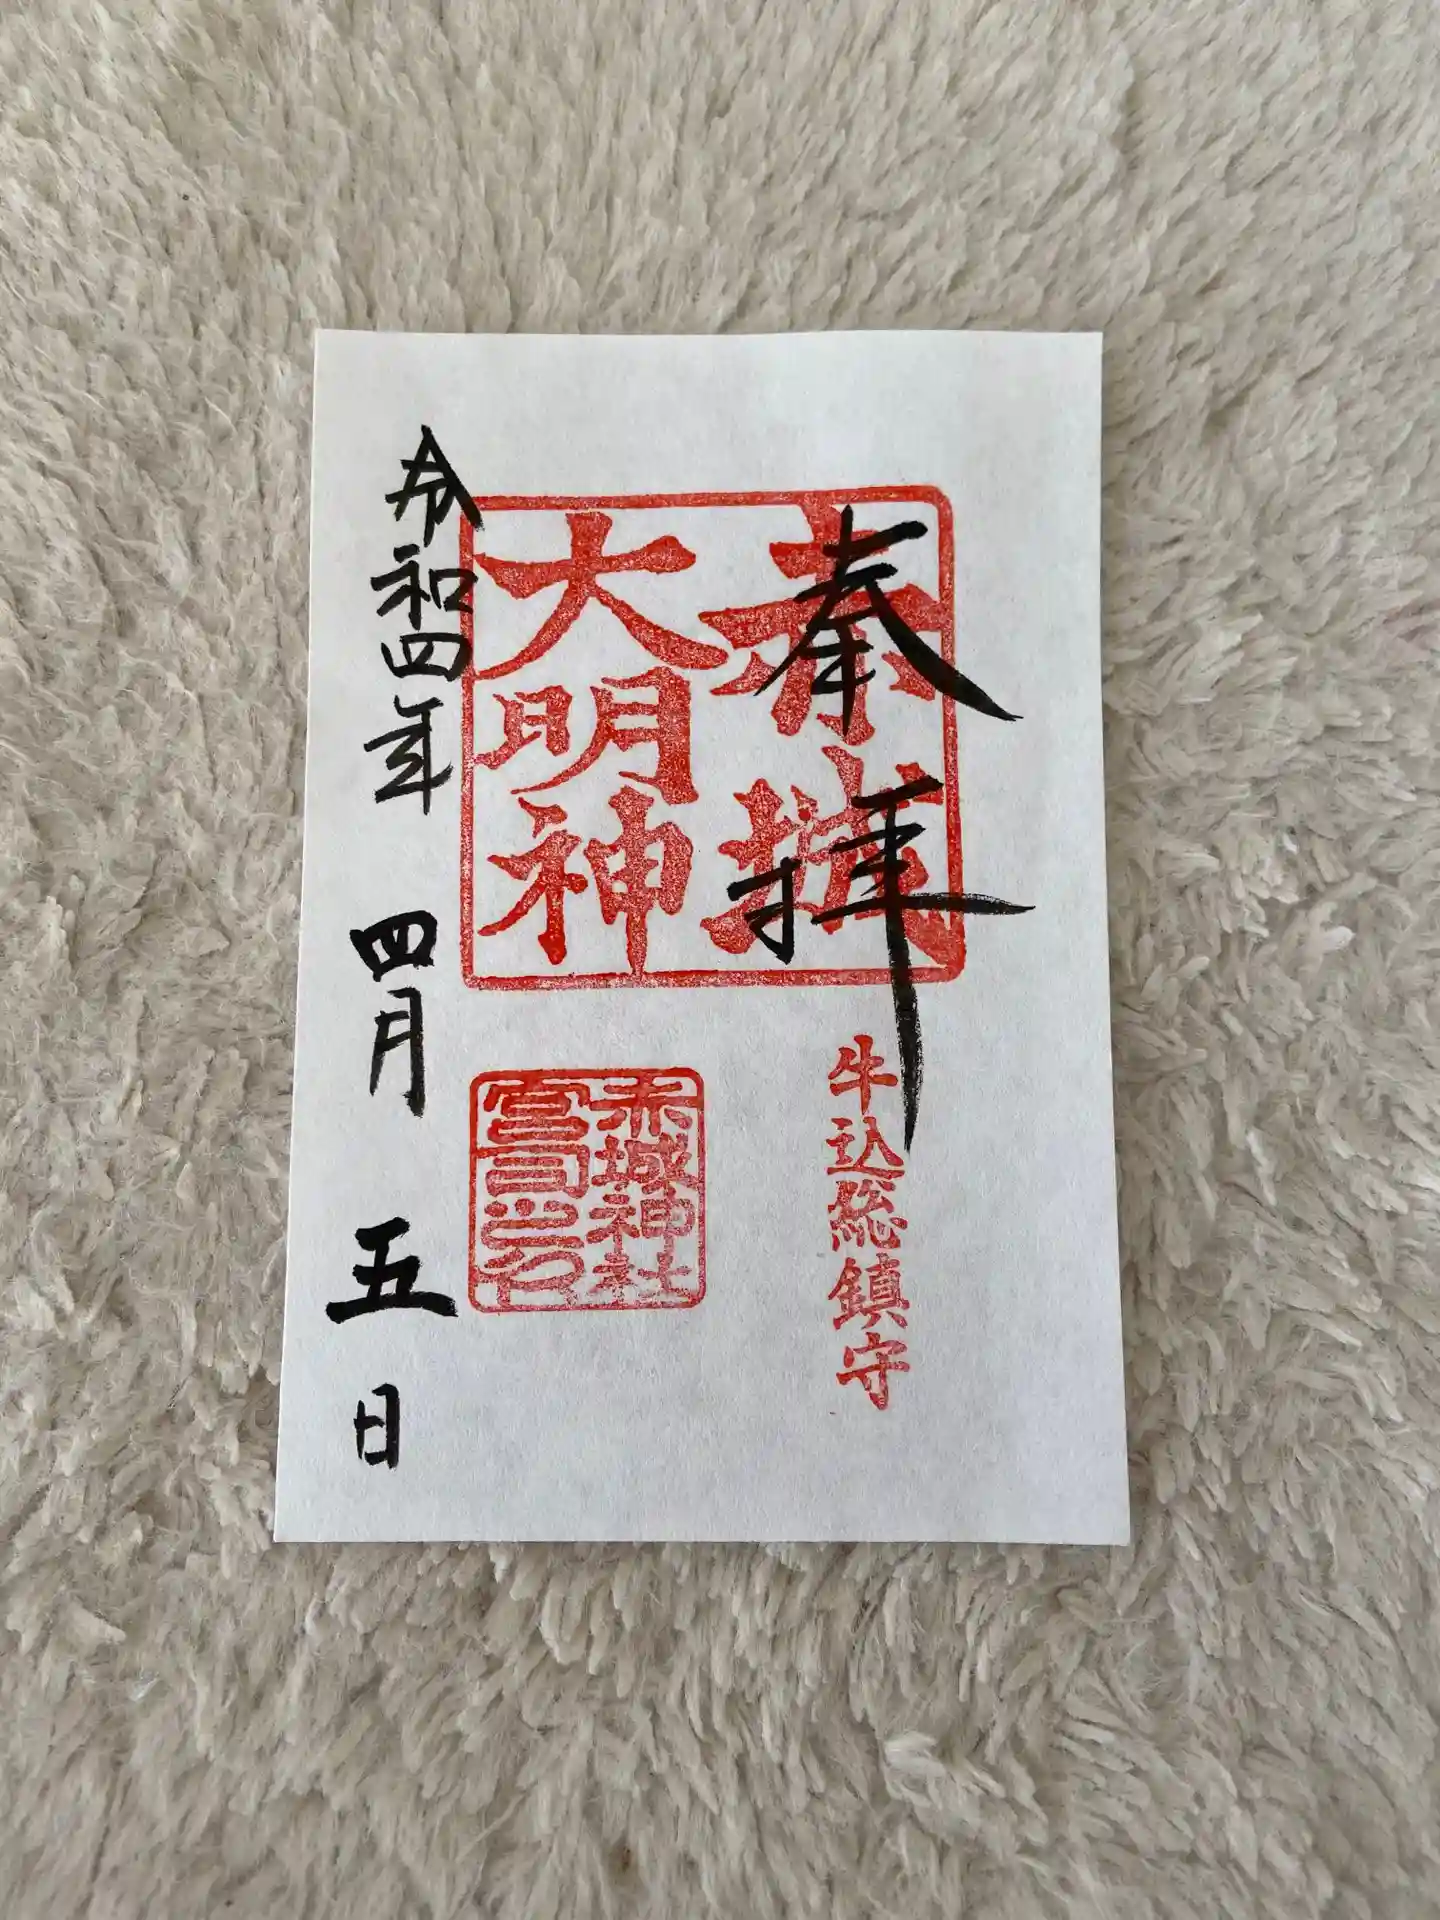 奉拝
赤城
大明神
牛込総鎮守
赤城神社
宮司之印
令和四年四月五日